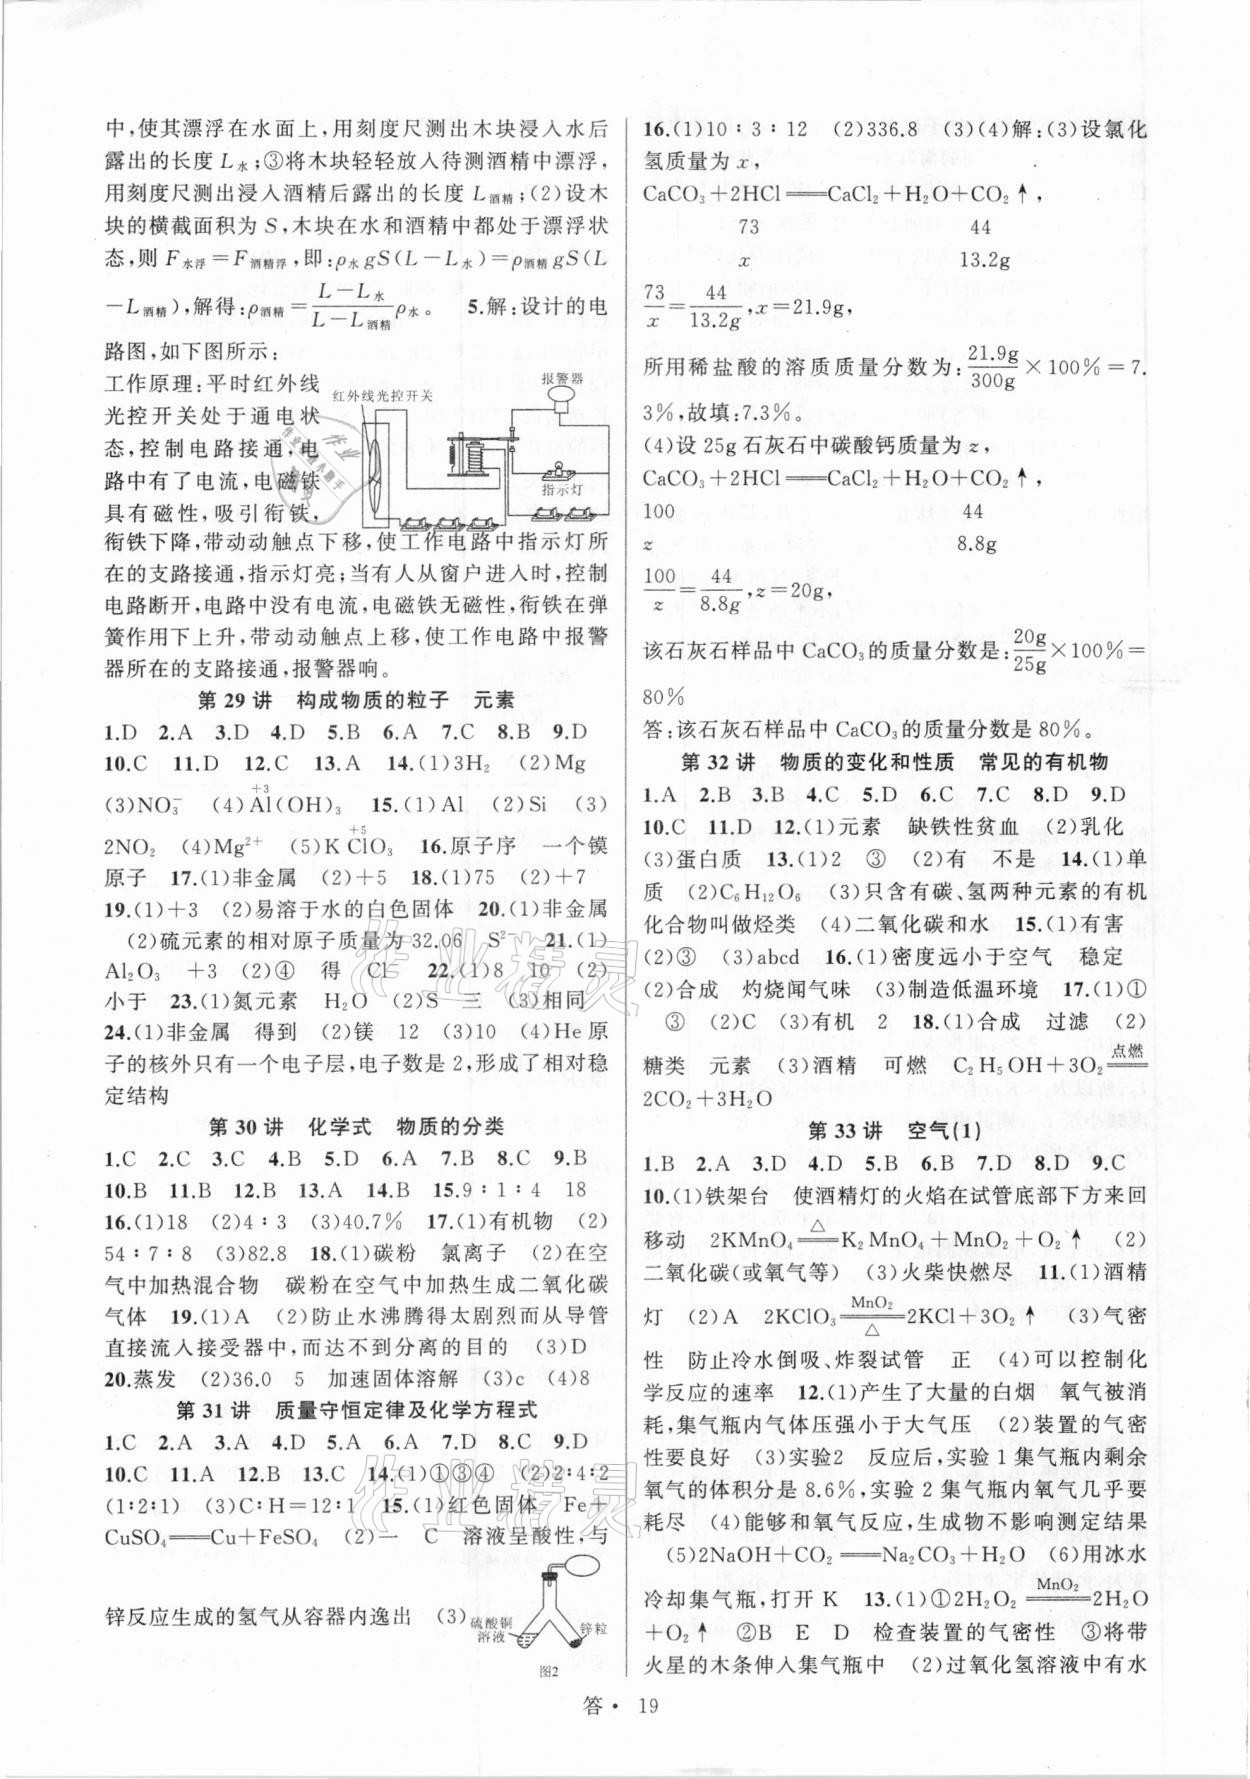 中,使其漂浮在水面上,用刻度尺测出木块浸入水后
露出的长度L水;③将木块轻轻放入待测酒精中漂浮,
用刻度尺测出浸入酒精后露出的长度L酒精;(2)设木
块的横截面积为S,木块在水和酒精中都处于漂浮状
态,则F水浮=F酒精浮,即:ρ水gS(L-L水)=ρ酒精gS(L
-L酒精),解得:ρ酒精=(L-L水)/(L-L酒精)ρ水。 5.解:设计的电
路图,如下图所示:
工作原理:平时红外线
光控开关处于通电状
态,控制电路接通,电
路中有了电流,电磁铁
具有磁性,吸引衔铁,
红外线光控开关
报警器
指示灯
衔铁下降,带动动触点下移,使工作电路中指示灯所
在的支路接通,指示灯亮;当有人从窗户进入时,控制
电路断开,电路中没有电流,电磁铁无磁性,衔铁在弹
簧作用下上升,带动动触点上移,使工作电路中报警
器所在的支路接通,报警器响。
第29讲 构成物质的粒子 元素
1.D 2.A 3.D 4.D 5.B 6.A 7.C 8.B 9.D
10.C 11.D 12.C 13.A 14.(1)3H₂ (2)Mg
(3)NO₃⁻ (4)Al(+3)(OH)₃ 15.(1)Al (2)Si (3)
2NO₂ (4)Mg²⁺ (5)KCl(+5)O₃ 16.原子序 一个镆
原子 17.(1)非金属 (2)+5 18.(1)75 (2)+7
19.(1)+3 (2)易溶于水的白色固体 20.(1)非金属
(2)硫元素的相对原子质量为32.06 S²⁻ 21.(1)
Al₂O₃ +3 (2)④ 得 Cl⁻ 22.(1)8 10 (2)
小于 23.(1)氮元素 H₂O (2)S 三 (3)相同
24.(1)非金属 得到 (2)镁 12 (3)10 (4)He原
子的核外只有一个电子层,电子数是2,形成了相对稳
定结构
第30讲 化学式 物质的分类
1.C 2.C 3.C 4.B 5.D 6.A 7.B 8.C 9.B
10.B 11.B 12.B 13.A 14.B 15.9:1:4 18
16.(1)18 (2)4:3 (3)40.7% 17.(1)有机物 (2)
54:7:8 (3)82.8 18.(1)碳粉 氯离子 (2)在空
气中加热混合物 碳粉在空气中加热生成二氧化碳
气体 19.(1)A (2)防止水沸腾得太剧烈而从导管
直接流入接受器中,而达不到分离的目的 (3)D
20.蒸发 (2)36.0 5 加速固体溶解 (3)c (4)8
第31讲 质量守恒定律及化学方程式
1.C 2.A 3.A 4.D 5.A 6.A 7.D 8.C 9.D
10.C 11.A 12.B 13.C 14.(1)①③④ (2)2:4:2
(1:2:1) (3)C:H=12:1 15.(1)红色固体 Fe+
CuSO₄══Cu+FeSO₄ (2)一 C 溶液呈酸性,与
锌反应生成的氢气从容器内逸出 (3)
硫酸铜
溶液
锌粒
图2
16.(1)10:3:12 (2)336.8 (3)(4)解:(3)设氯化
氢质量为x,
CaCO₃+2HCl══CaCl₂+H₂O+CO₂↑,
73 44
x 13.2g
73/x=44/13.2g,x=21.9g,
所用稀盐酸的溶质质量分数为:21.9g/300g×100%=7.
3%,故填:7.3%。
(4)设25g石灰石中碳酸钙质量为z,
CaCO₃+2HCl══CaCl₂+H₂O+CO₂↑,
100 44
z 8.8g
100/z=44/8.8g,z=20g,
该石灰石样品中CaCO₃的质量分数是:20g/25g×100%=
80%
答:该石灰石样品中CaCO₃的质量分数是80%。
第32讲 物质的变化和性质 常见的有机物
1.A 2.B 3.B 4.C 5.D 6.C 7.C 8.D 9.D
10.C 11.D 12.(1)元素 缺铁性贫血 (2)乳化
(3)蛋白质 13.(1)2 ③ (2)有 不是 14.(1)单
质 (2)C₆H₁₂O₆ (3)只含有碳、氢两种元素的有机
化合物叫做烃类 (4)二氧化碳和水 15.(1)有害
(2)③ (3)abcd 16.(1)密度远小于空气 稳定
(2)合成 灼烧闻气味 (3)制造低温环境 17.(1)①
③ (2)C (3)有机 2 18.(1)合成 过滤 (2)
糖类 元素 (3)酒精 可燃 C₂H₅OH+3O₂═点燃═
2CO₂+3H₂O
第33讲 空气(1)
1.B 2.A 3.D 4.D 5.B 6.B 7.D 8.D 9.C
10.(1)铁架台 使酒精灯的火焰在试管底部下方来回
移动 2KMnO₄═△═K₂MnO₄+MnO₂+O₂↑ (2)
二氧化碳(或氧气等) (3)火柴快燃尽 11.(1)酒精
灯 (2)A 2KClO₃═MnO₂/△═2KCl+3O₂↑ (3)气密
性 防止冷水倒吸、炸裂试管 正 (4)可以控制化
学反应的速率 12.(1)产生了大量的白烟 氧气被消
耗,集气瓶内气体压强小于大气压 (2)装置的气密
性要良好 (3)实验2 反应后,实验1集气瓶内剩余
氧气的体积分是8.6%,实验2集气瓶内氧气几乎要
耗尽 (4)能够和氧气反应,生成物不影响测定结果
(5)2NaOH+CO₂══Na₂CO₃+H₂O (6)用冰水
冷却集气瓶,打开K 13.(1)①2H₂O₂═MnO₂═2H₂O
+O₂↑ ②B E D 检查装置的气密性 ③将带
火星的木条伸入集气瓶中 (2)过氧化氢溶液中有水
答·19
作业精灵
作业精灵